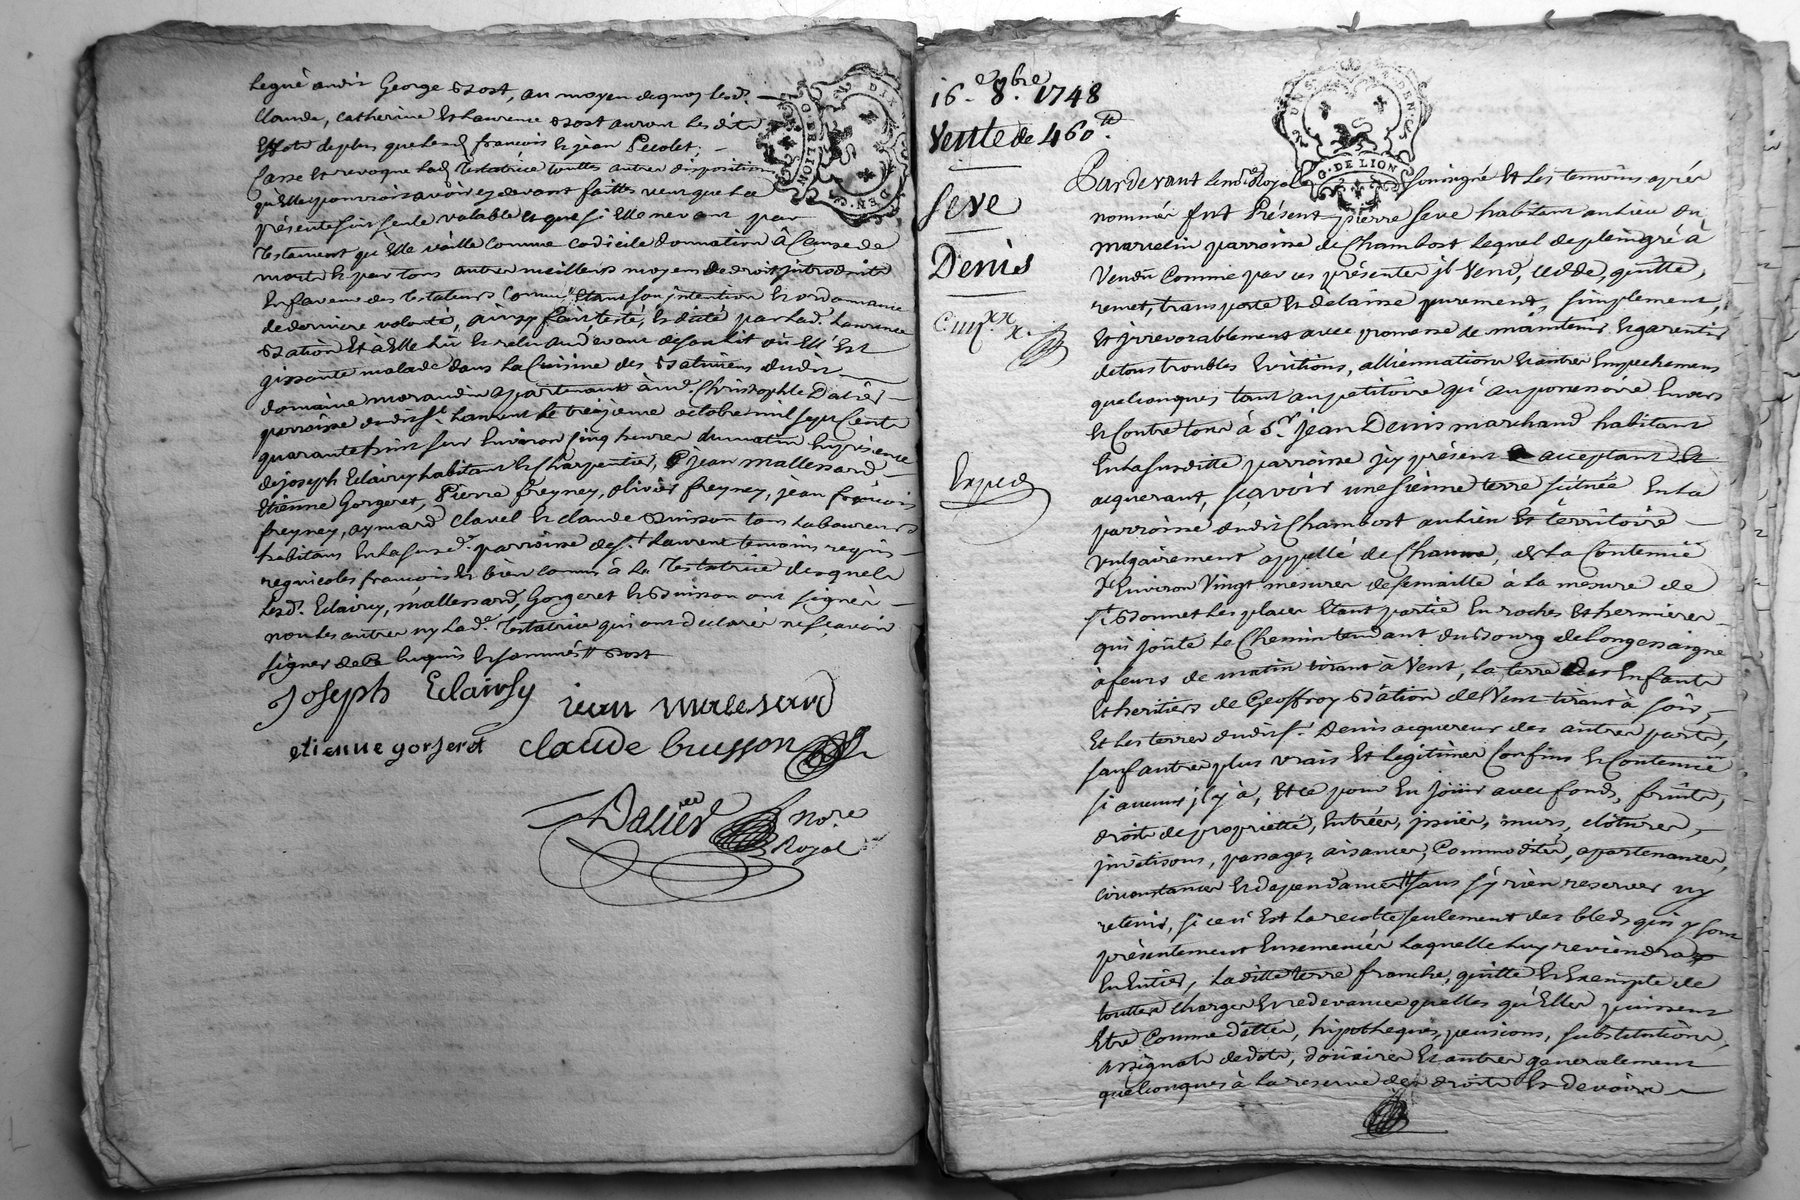 legué audit George Biost, au moyen dequoy lesd.
Claude, Catherine et Laurence Biost auront lesdits
effets de plus que lesd. françois et jean Pecolet.
Casse et revoque lad. Testatrice touttes autres dispositions
qu'Elle pourroit avoir cy devant faittes veut que la
présente soit seule valable et que si Elle ne vaut par
Testament qu'Elle vaille comme codicile donnation à Cause de
mort et par tous autres meilleurs moyens de droit introduits
en faveur des testateurs Comme etant son intention et ordonnance
de derniere volonté, ainsy fait, testé, et dicté par lad. Laurence
Bation et à Elle lû et relu au devant de son lit où Elle Est
gissante malade dans la Cuisine des Batimens dudit
domaine morandin apartenant à md. Christophle Dalier
parroisse dudit St. Laurent le treizieme octobre mil sept Cents
quarante huit sur Environ Cinq heures du matin En présence
de joseph Eclairsy habitant et Charpentier, jean mallessard
Etienne Gorgeret, Pierre freyney, olivier freyney, jean françois
freyney, aymard Clavel et Claude Buisson tous laboureurs
habitans En la susd. parroisse de St. Laurent temoins requis
regnicoles francois et bien connus à la Testatrice desquels
lesd. Eclairsy, mallessard, Gorgeret et Buisson ont signés
non les autres ny lad. Testatrice qui ont declarés ne sçavoir
signer de ce Enquis et sommés Biost
Joseph Eclairsy jean malesard
etienne gorjeret claude buisson
Dalier nore
Royal
G. DE LION
DIX DEN.
16e 8bre 1748
Vente de 460tt.
Seve
Denis
Exped
UN S. 4 DEN.
G. DE LION
Pardevant le nore Royal soussigné Et les temoins après
nommés fut Présent pierre Seve habitant au lieu du
marcelin parroisse de Chambost lequel de plein gré à
Vendû Comme par ces présentes jl Vend, cedde, quitte,
remet, transporte et delaisse purement, simplement,
Et jrrevocablement avec promesse de maintenir et garentir
de tous troubles Evictions, alliennations et autres Empechemens
quelconques tant au petitoire qu'au possessoire Envers
et Contre tous à Sr. jean Denis marchand habitant
En la susditte parroisse jcy présent acceptant Et
aquerant, sçavoir une sienne terre située En la
parroisse dudit Chambost au lieu Et territoire
vulgairement appellé de Chaume, de la Contenuë
d'Environ Vingt mesures de semaille à la mesure de
St. Bonnet les places Etant partie En roches et hermieres
qui joûte le Chemin tendant du Bourg de Longessaigne
à feurs de matin tirant à Vent, la terre des Enfants
Et heritiers de Geoffroy Bation de Vent tirant à soir,
Et les terres dudit sr. Denis aquereur des autres parts,
sauf autres plus vrais Et legitimes Confins et Contenuë
si aucuns jl y à, Et ce pour En joüir avec fonds, fruits,
droits de proprietté, Entrées, jssuës, murs, clôtures,
passages, aisances, Commodités, apartenances,
circonstances et dependances sans s'y rien reserver ny
retenir, si ce n'Est la recolte seulement des bleds qui y sont
présentement Ensemencés laquelle luy reviendra
En Entier, laditte terre franche, quitte et Exempte de
touttes charges et redevances quelles qu'Elles puissent
Etre Comme dettes, hipotheques, pensions, substitutions,
assignats de dots, doüaires Et autres generalement
quelconques à la reserve des droits et devoirs